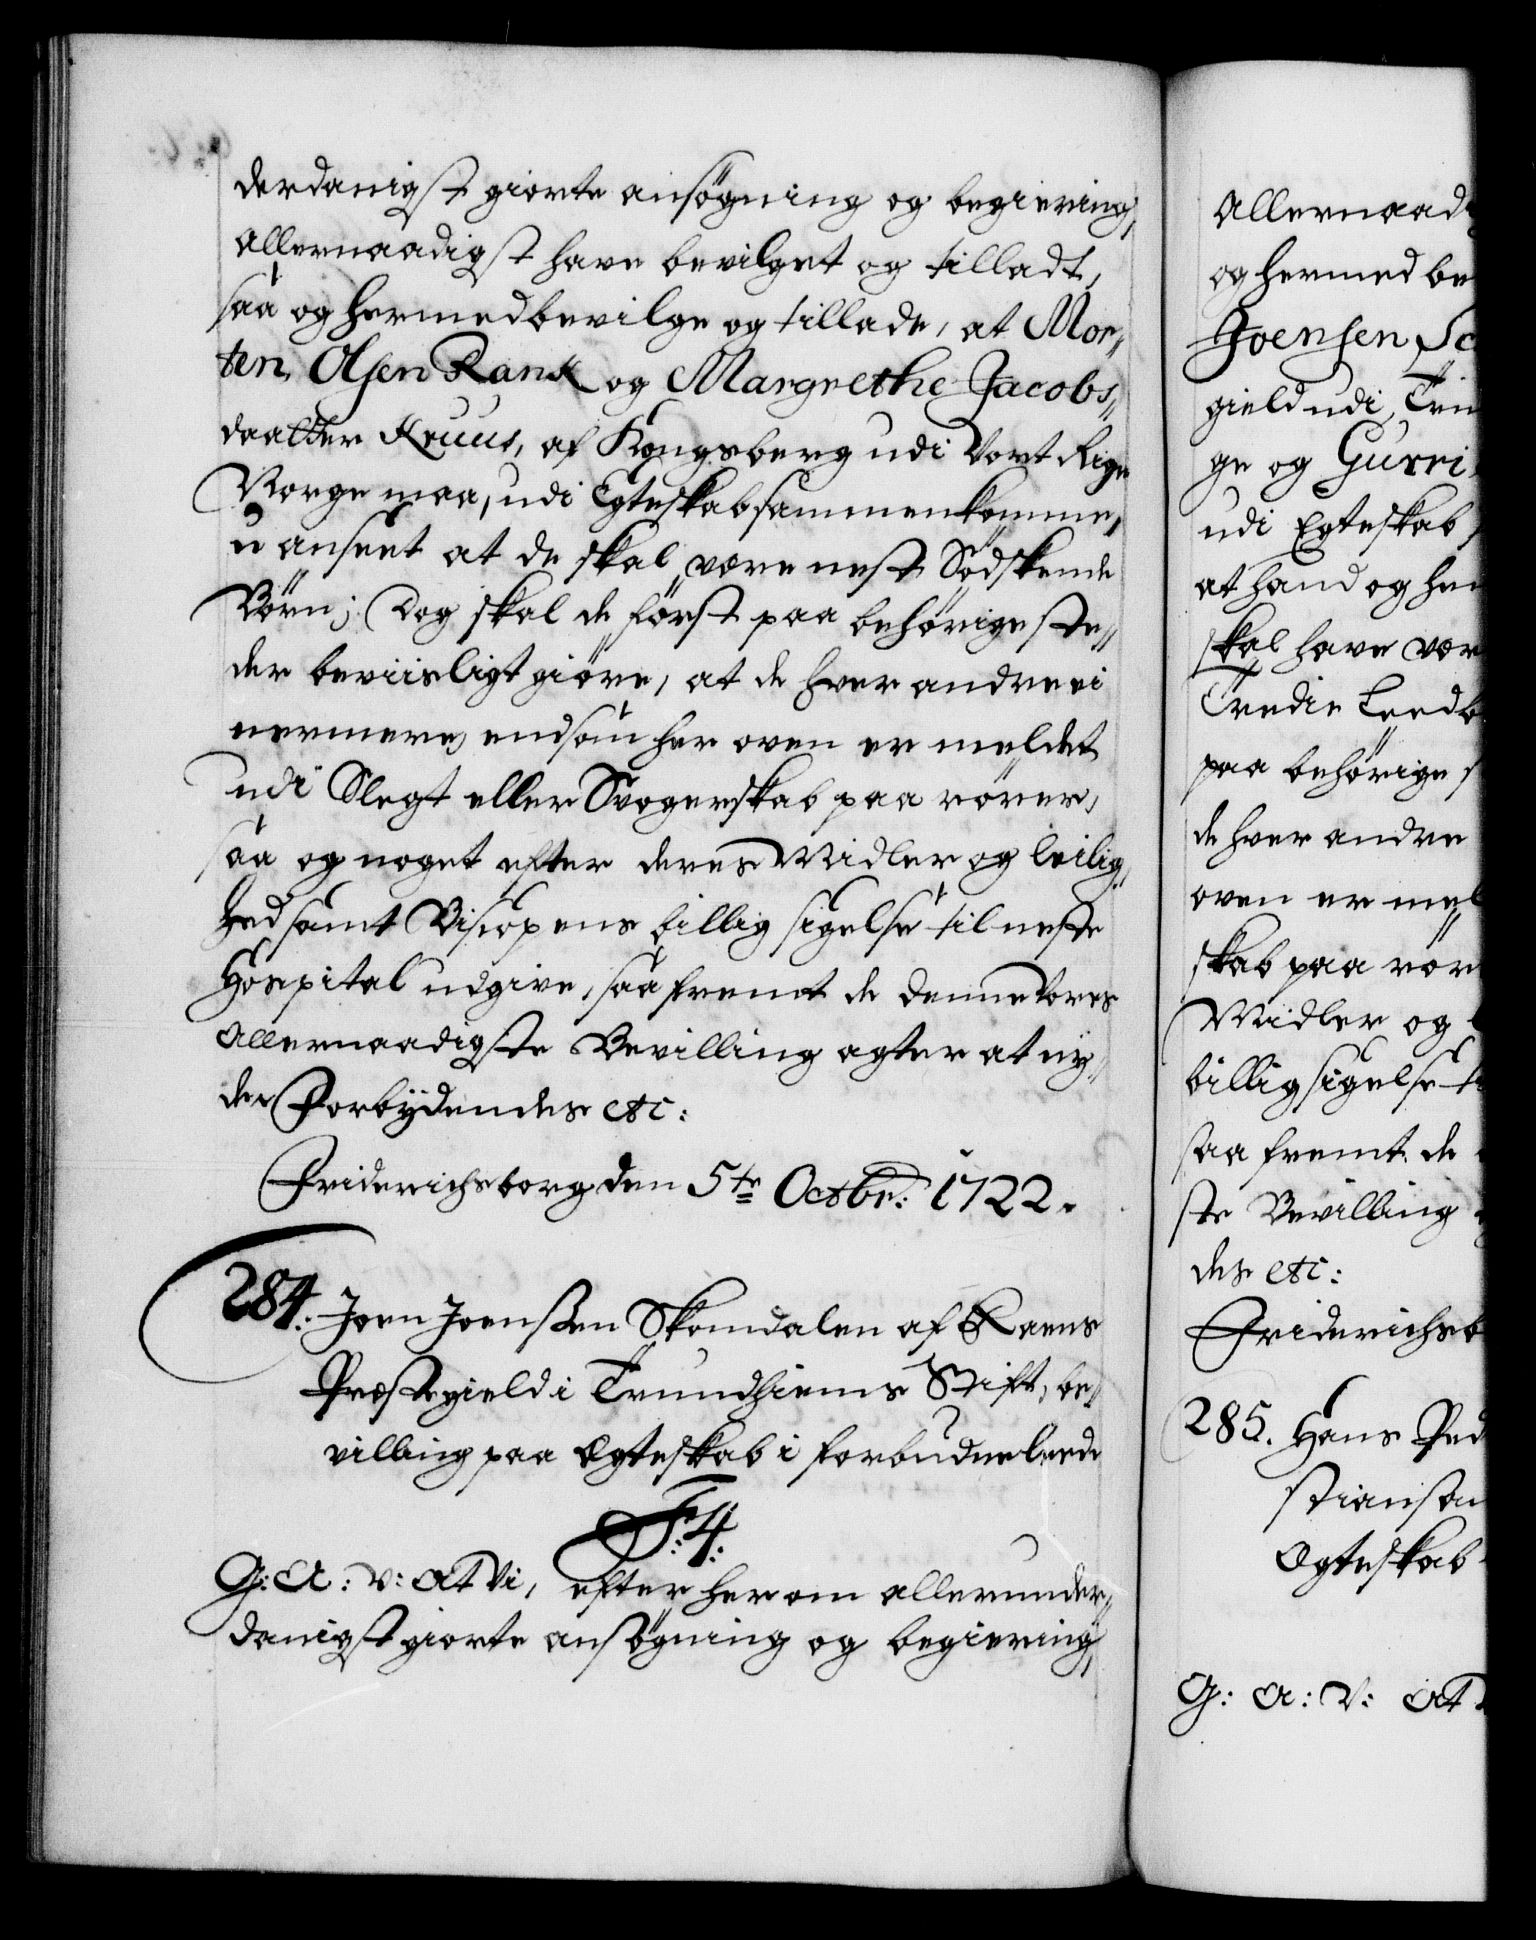 derdanigst giorte ansøgning og begiering,
Allernaadigst have bevilget og tilladt,
saa og hermed bevilge og tillade, at Mor„
ten, Olsen Rank og Margrethe Jacobs„
daatter Kruus, af Kongsberg udi Vort Rige
Norge maa, udi Egteskab sammenkomme,
u anseet at de skal være nest Sødskende
Børn; Dog skal de først paa behørige ste„
der beviisligt giøre, at de hver andre ei
nermere, end som her oven er meldet
udi Slegt eller Svogerskab paarører,
saa og noget efter deres Midler og leilig„
hed samt Biscopens billig sigelse til neste
Hospital udgive, saafremt de denne Vores
Allernaadigste Bevilling agter at ny„
de. Forbydendes etc:
Friderichsborg den 5te Octbr: 1722.
284. Joen Joenssen Skomdalen af Raens
Præstegield i Trundhiems Stift, be„
villing paa Ægteskab i forbudne leede
F: 4:
G: A: V: At Vi, efter herom allerunder„
danigst giorte ansøgning og begiering,
Allernaad
og hermed be
Joensen Sc
gield udi Trun
ge og Gurri
udi Egteskab
at hand og hen
skal have vær
Tredie Leed
paa behørige s
de hver andre
oven er mel
skab paa rør
Midler og l
billig sigelse ti
saa fremt de
ste Bevilling
des etc:
Friderichsb
285. Hans Ped
stiansan
Ægteskab
G: A: V: At